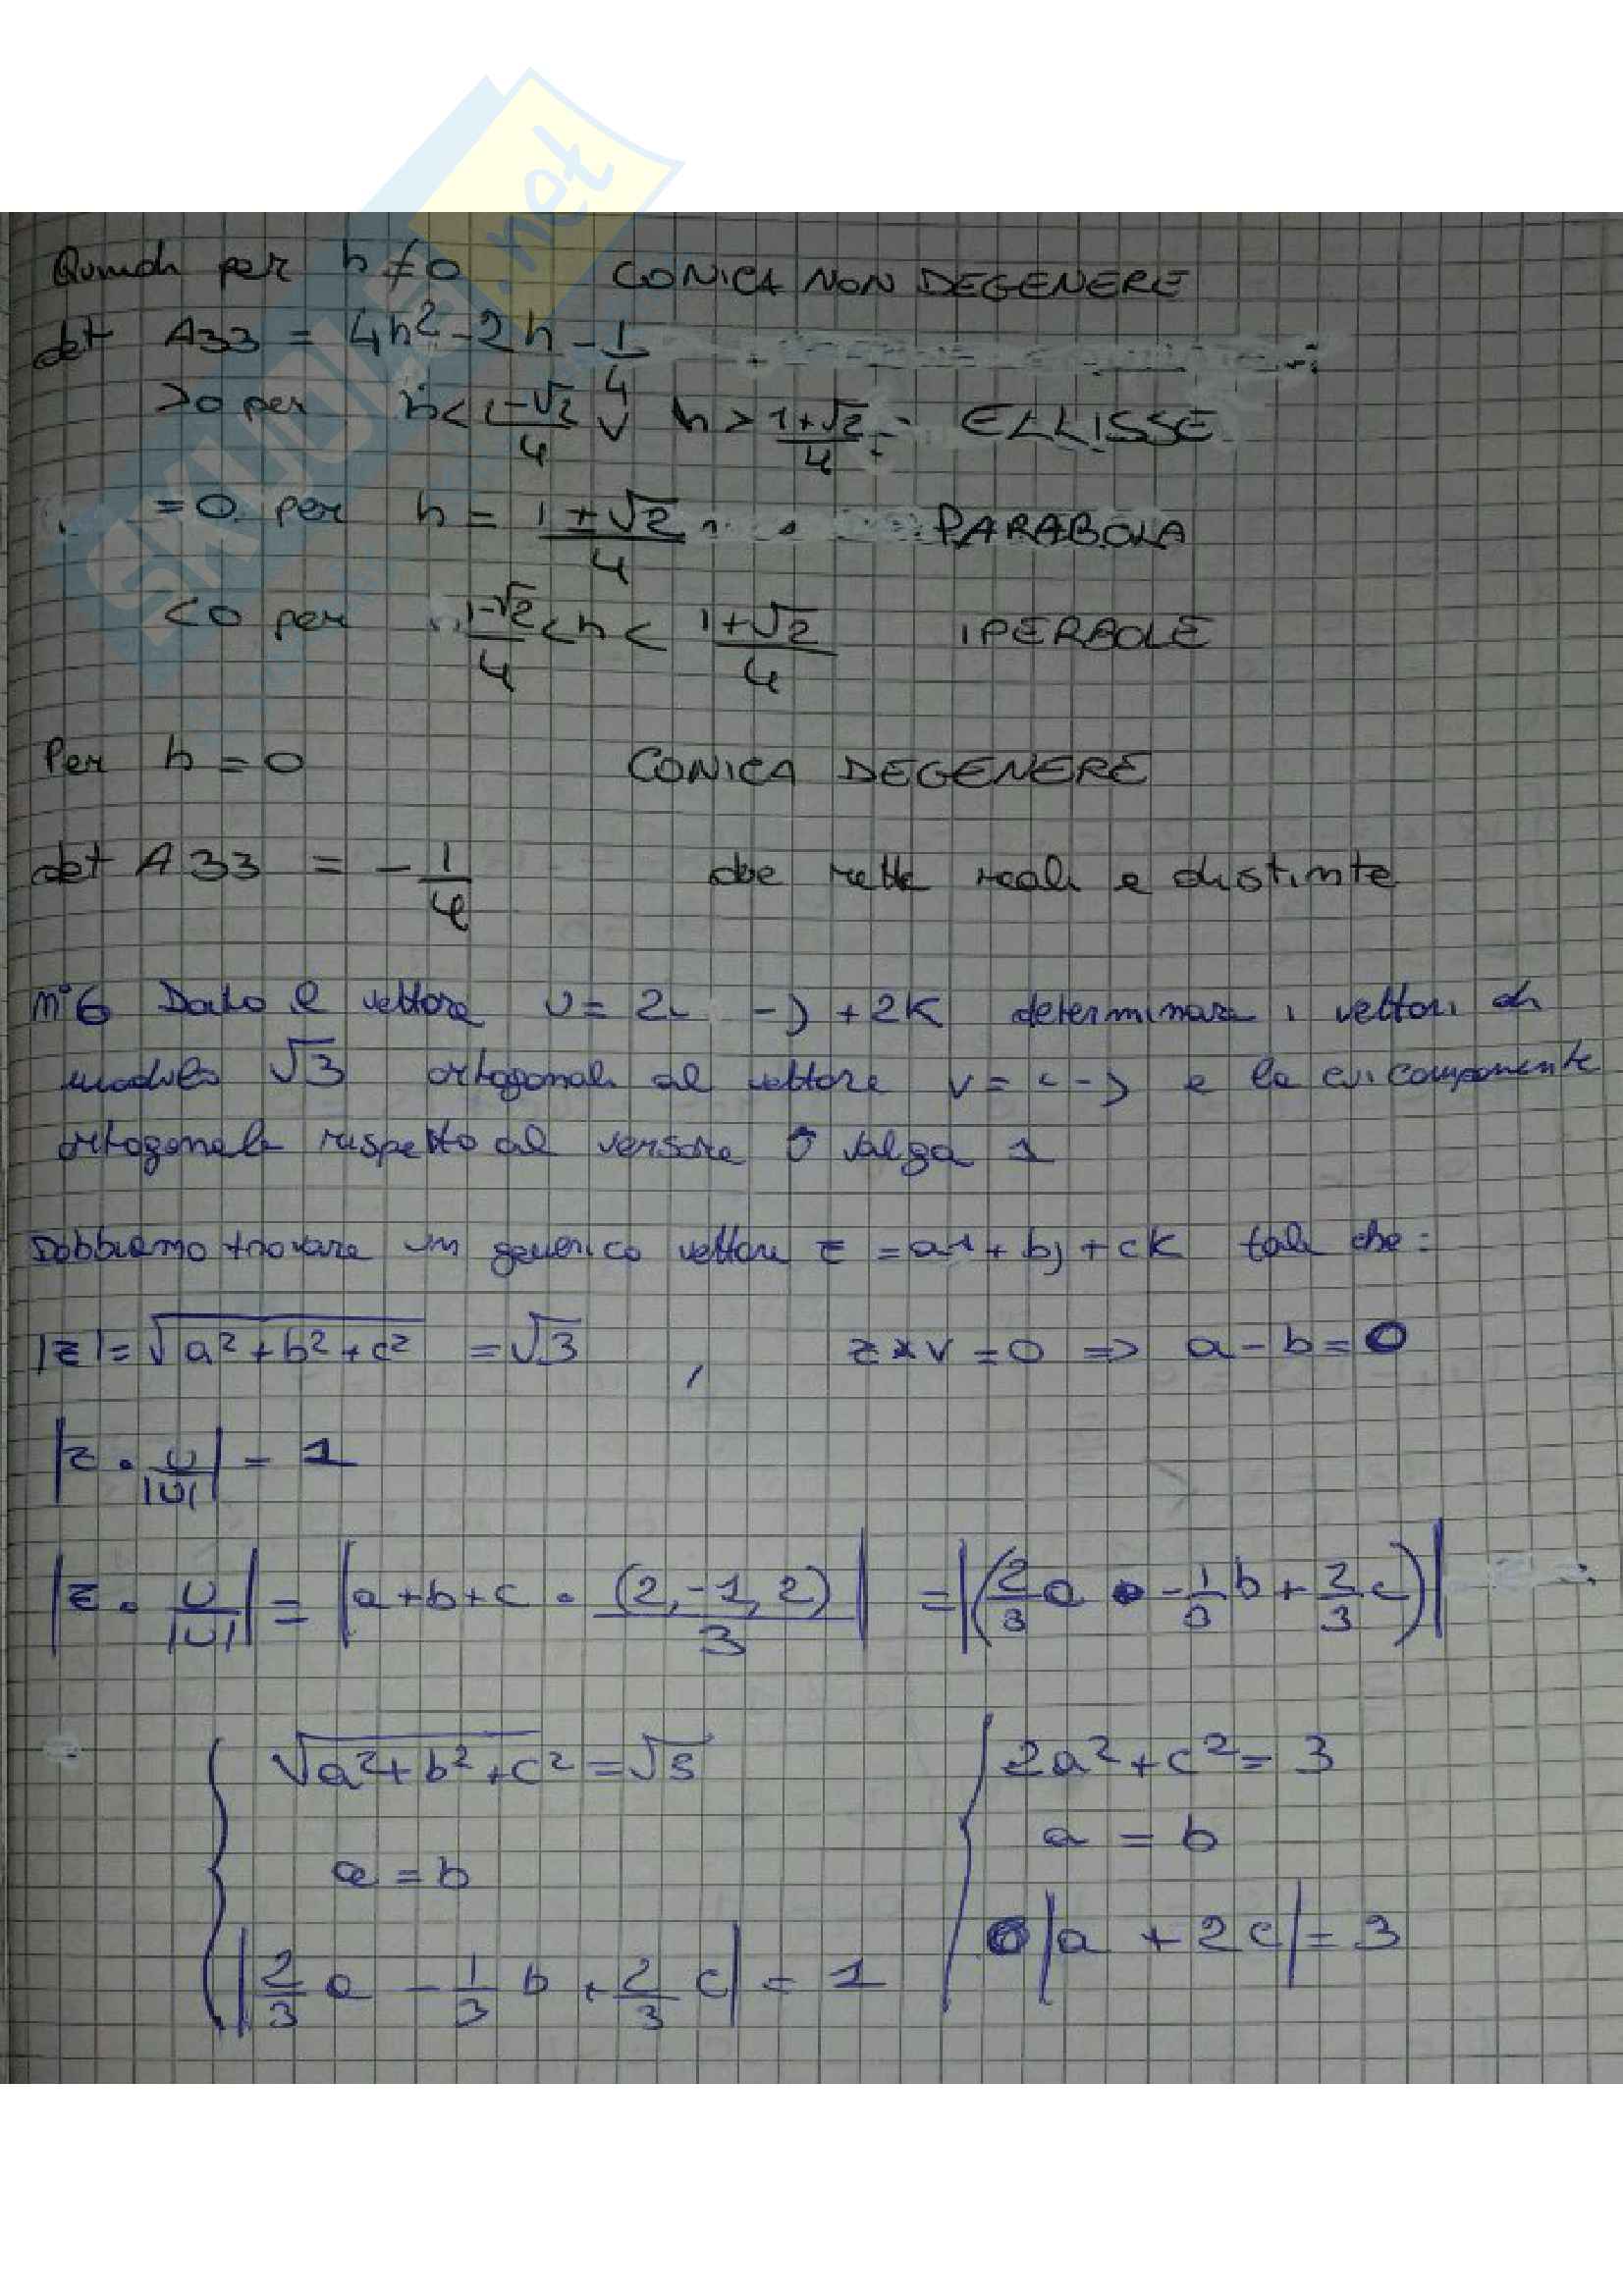 Quindi per h ≠ 0 CONICA NON DEGENERE
det A33 = 4h² - 2h - 1/4
>0 per h < (1-√2)/4 ∨ h > (1+√2)/4 ELLISSE
=0 per h = (1±√2)/4 PARABOLA
<0 per (1-√2)/4 < h < (1+√2)/4 IPERBOLE
Per h = 0 CONICA DEGENERE
det A33 = - 1/4 due rette reali e distinte
N°6 Dato il vettore U = 2i - j + 2K determinare i vettori di
modulo √3 ortogonali al vettore v = i - j e la cui componente
ortogonale rispetto al versore Û valga 1
Dobbiamo trovare un generico vettore z = ai + bj + cK tale che:
|z| = √(a² + b² + c²) = √3 , z × v = 0 ⇒ a - b = 0
|z · U/|U|| = 1
|z · U/|U|| = |a + b + c · (2, -1, 2)/3| = |(2/3 a - 1/3 b + 2/3 c)|
√(a² + b² + c²) = √3 2a² + c² = 3
a = b a = b
|2/3 a - 1/3 b + 2/3 c| = 1 |a + 2c| = 3
SKUOLA.net